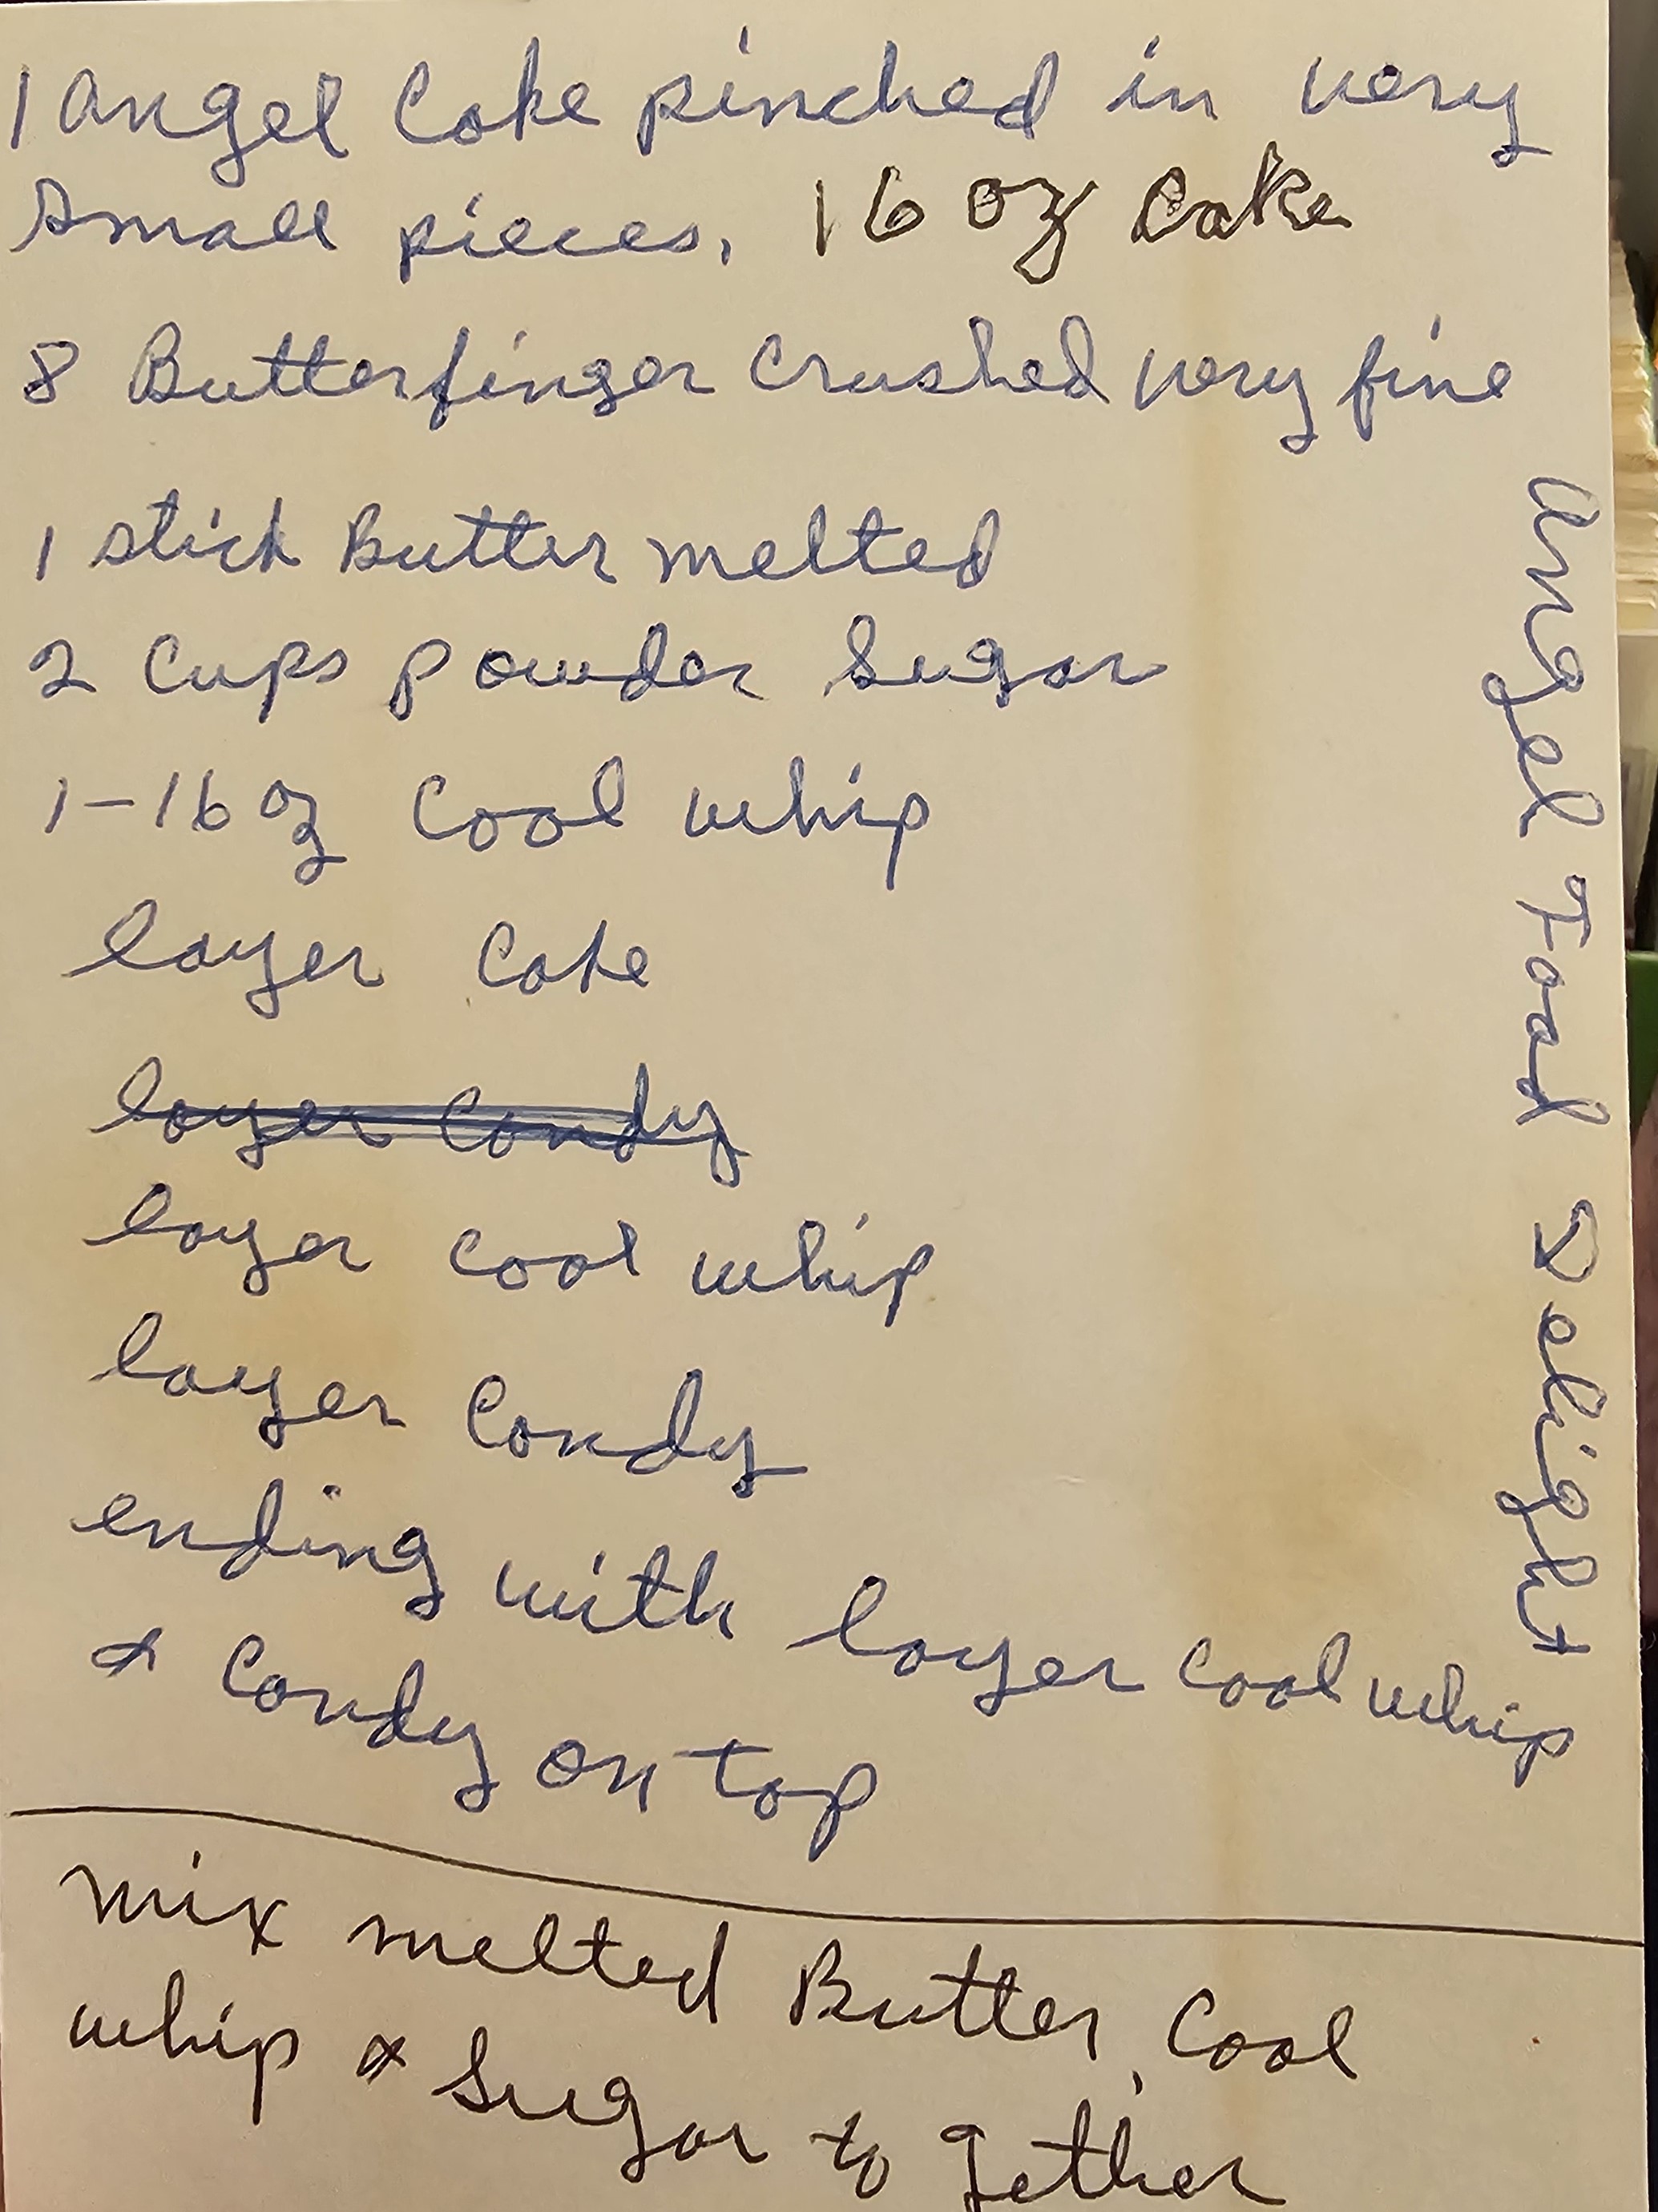 1 Angel Cake pinched in very
small pieces. 16 oz Cake
8 Butterfinger crushed very fine
1 stick Butter melted
2 cups powder sugar
1-16 oz Cool whip
layer Cake
layer Candy
layer cool whip
layer Candy
ending with layer cool whip
& Candy on top
mix melted Butter, Cool
whip & sugar to gether
Angel Food Delight